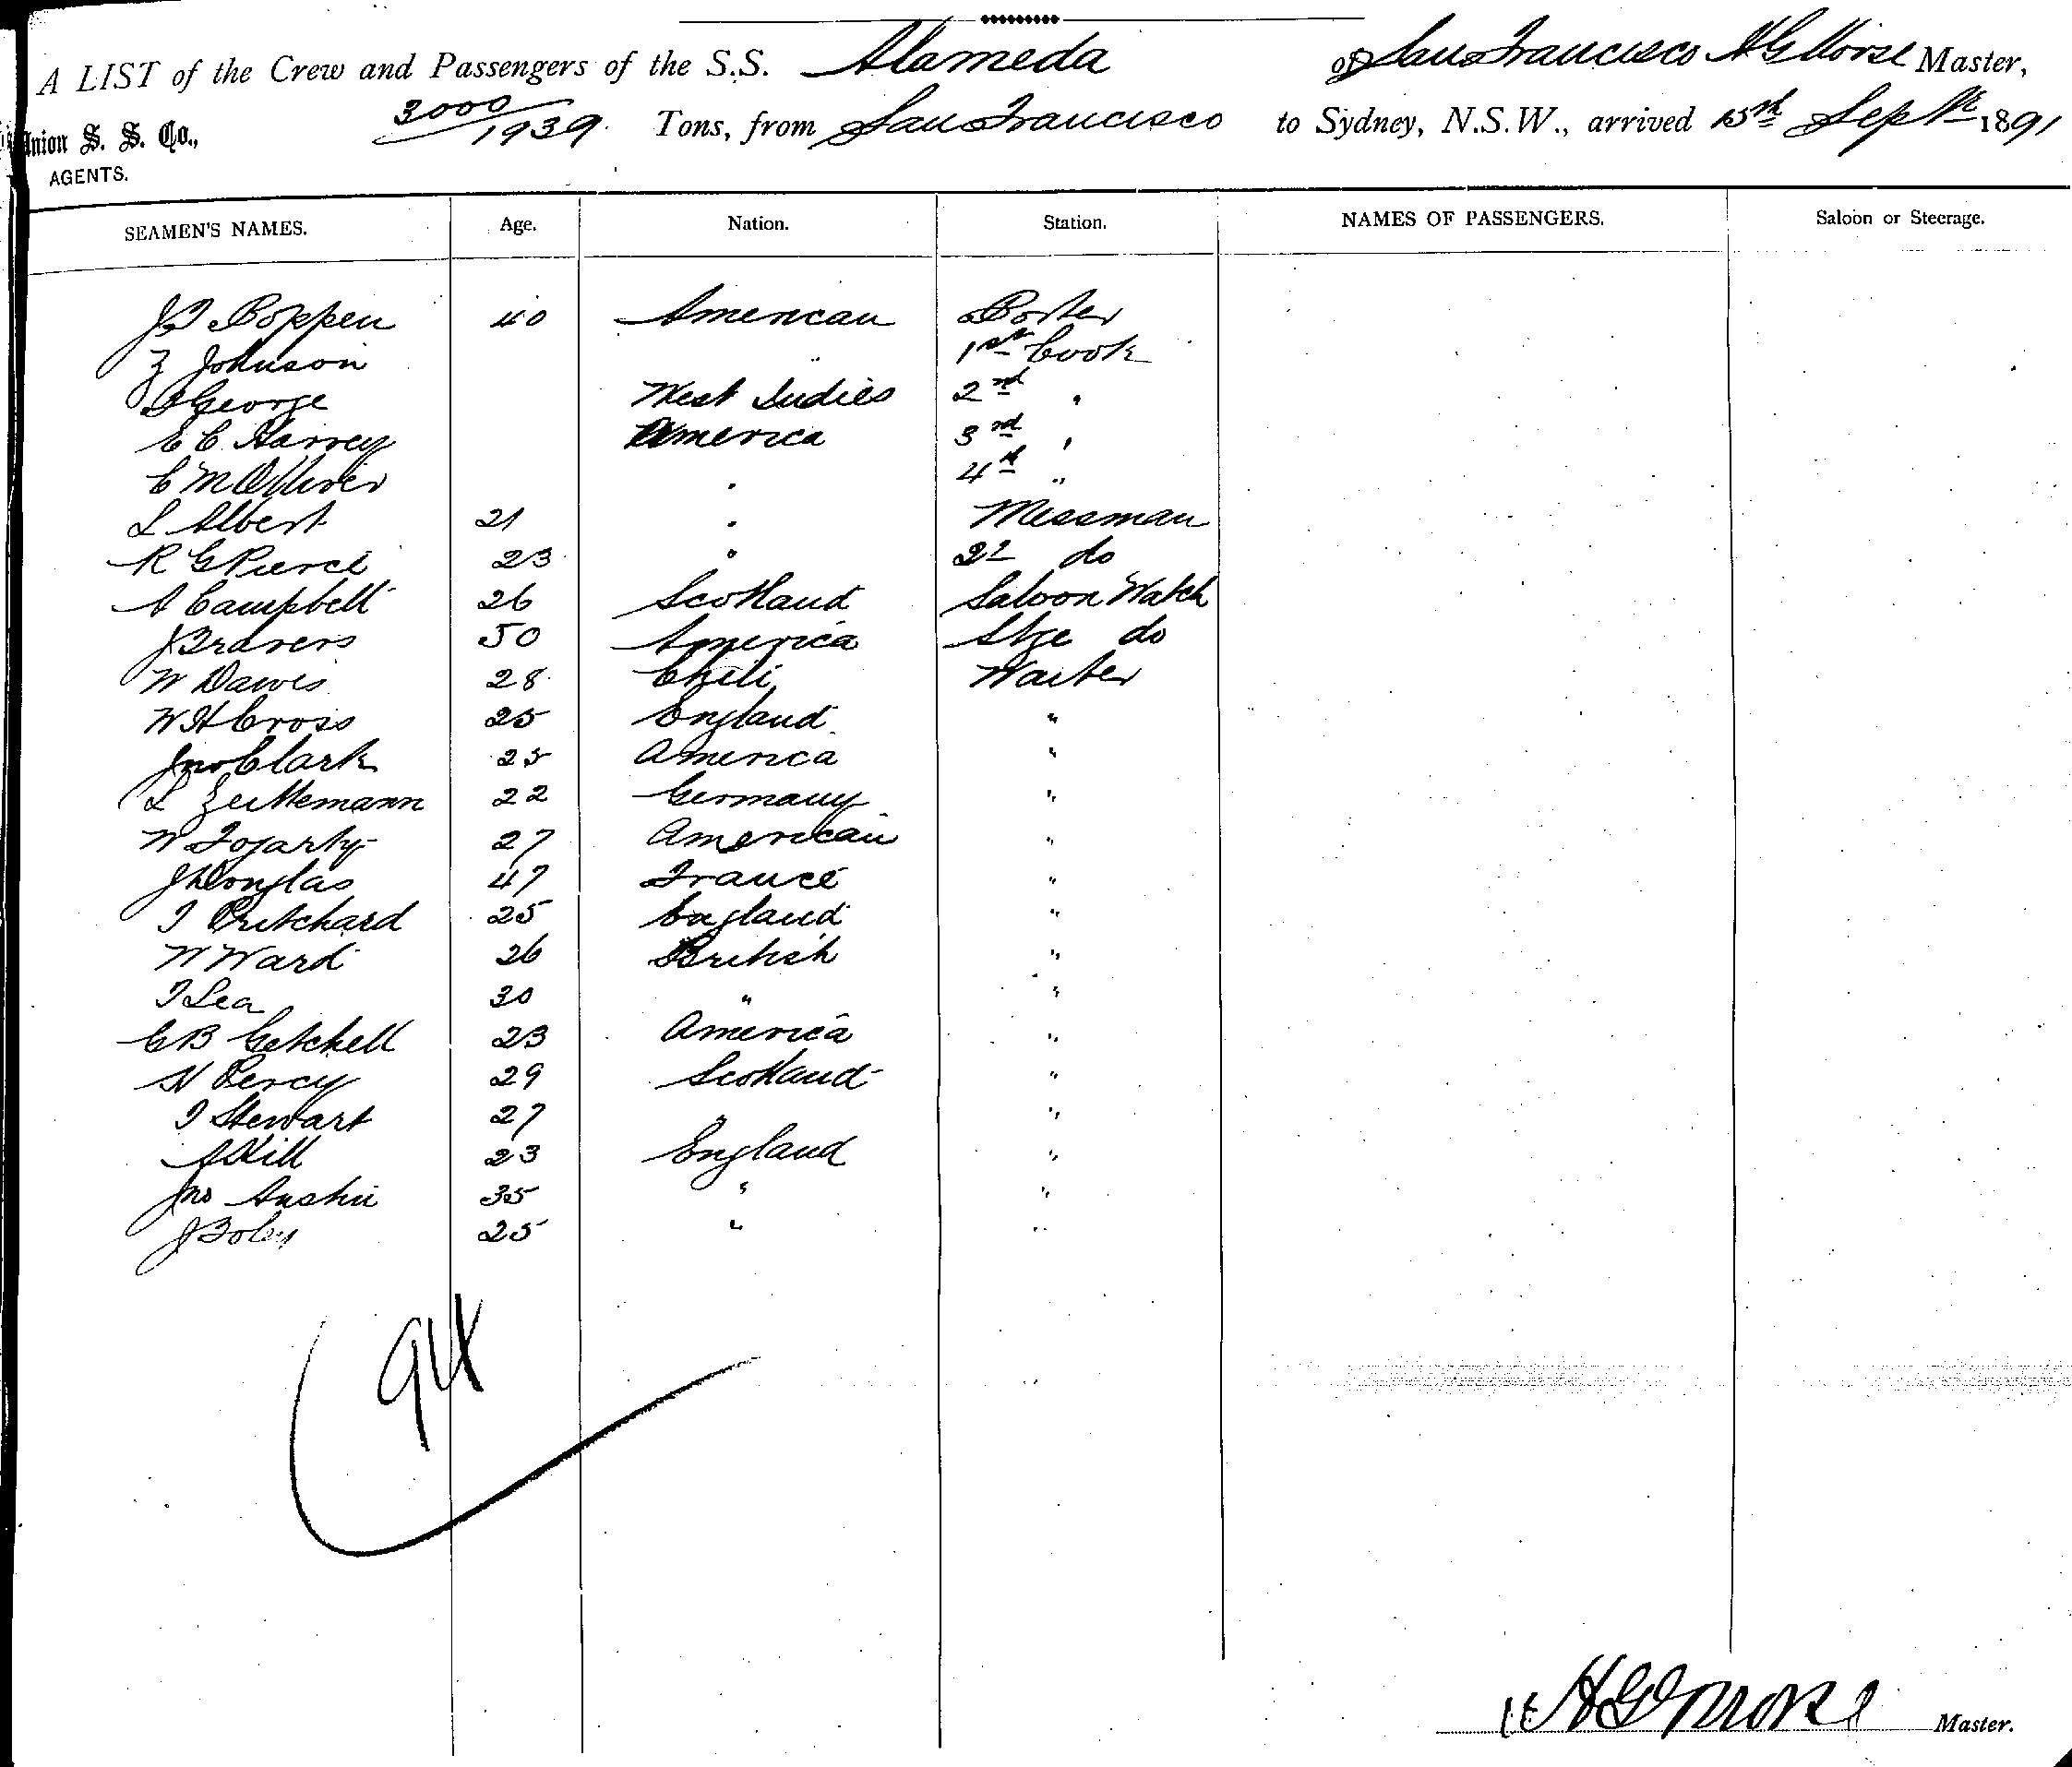 A LIST of the Crew and Passengers of the S.S. Alameda of San Francisco H G Morse Master,
Union S. S. Co., 3000/1939 Tons, from San Francisco to Sydney, N.S.W., arrived 15th Septr 1891
AGENTS.
SEAMEN'S NAMES. Age. Nation. Station. NAMES OF PASSENGERS. Saloon or Steerage.
Poppen 40 American Porter
Z Johnson " 1st Cook
George West Indies 2nd "
E C Harvey America 3rd "
C M Olliver " 4th "
L Albert 21 " Messman
R G Pierce 23 " 2d do
A Campbell 26 Scotland Saloon Watch
J Travers 50 America Stge do
W Dawes 28 Chili Waiter
W H Cross 25 England "
Jno Clark 25 America "
L Zeittemann 22 Germany "
W Fogarty 27 American "
J Douglas 47 France "
T Pritchard 25 England "
W Ward 26 British "
T Lea 30 " "
C B Getchell 23 America "
H Percy 29 Scotland "
T Stewart 27 " "
A Hill 23 England "
Jno Austin 35 " "
J 25 " "
94
H G Morse Master.